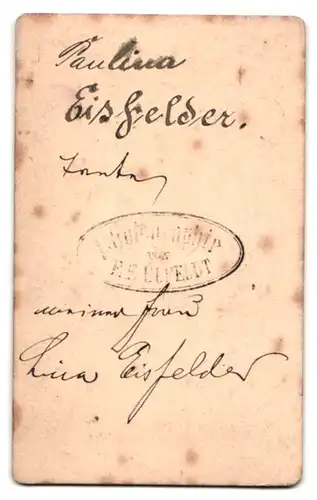 Paulina
Eisfelder.
Tante
Photographie
von
meiner Frau
Lina Eisfelder